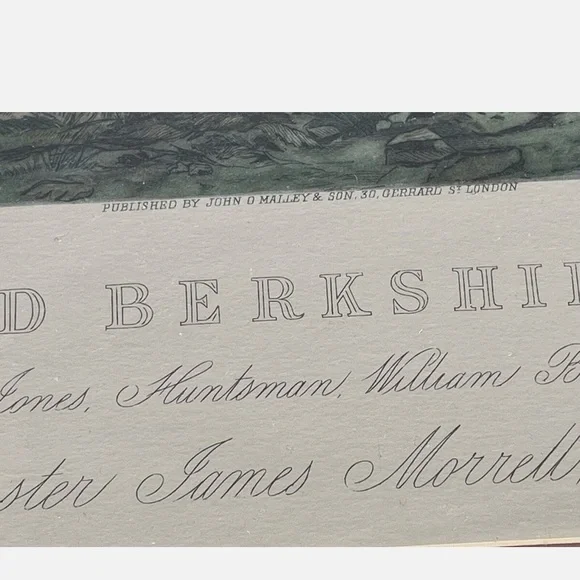 PUBLISHED BY JOHN O MALLEY & SON, 30, GERRARD ST. LONDON
D BERKSHI
Jones, Huntsman, William B
ster James Morrell,